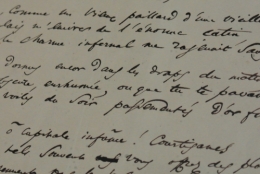 comme un vieux paillard d'une vieille
lais m'enivrer de l'énorme catin
le charme infernal me rajeunit sans
dormes encor dans les draps du matin
scure, enrhumée, ou que tu te pavan
voiles du soir passementés d'or f
ô capitale infâme! Courtisanes
tels souvent vous offrez des pla